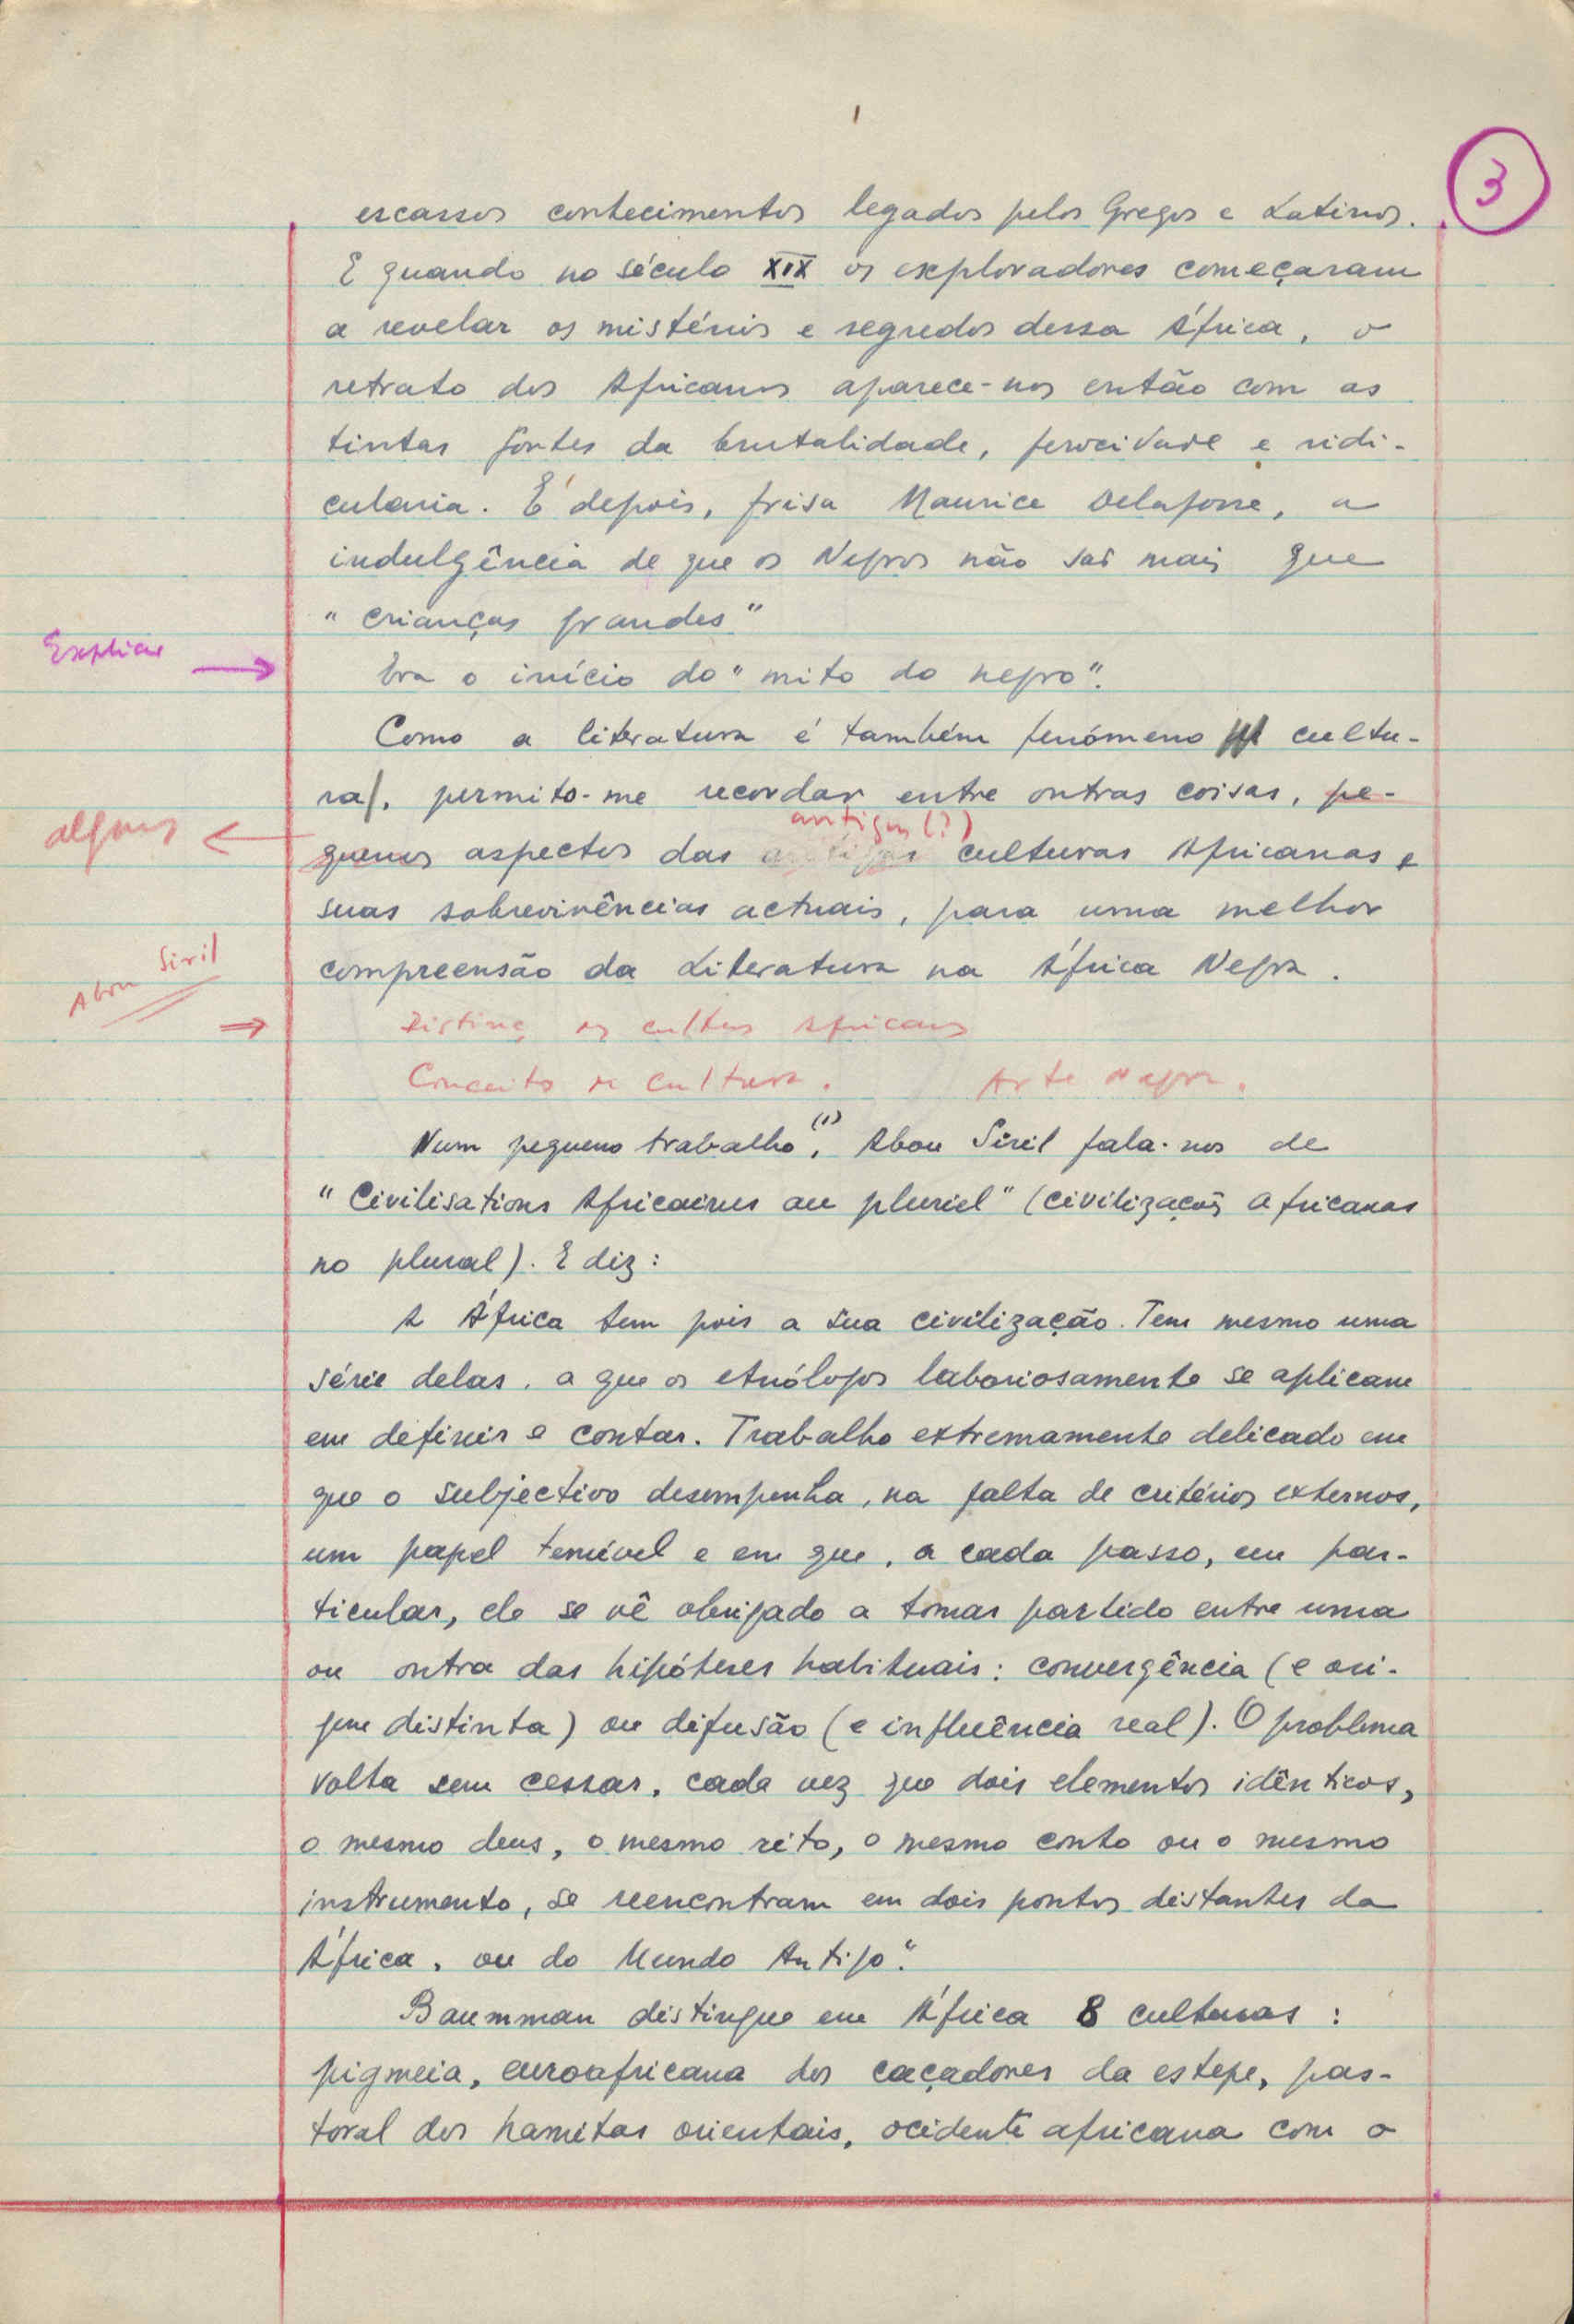 3
escassos conhecimentos legados pelos Gregos e Latinos.
E quando no século XIX os exploradores começaram
a revelar os mistérios e segredos dessa África, o
retrato dos Africanos aparece-nos então com as
tintas fortes da brutalidade, ferocidade e ridi-
cularia. E depois, frisa Maurice Delafosse, a
indulgência de que os Negros não são mais que
"crianças grandes"
Explicar →
Era o início do "mito do negro".
Como a literatura é também fenómeno cultu-
ral, permito-me recordar entre outras coisas, pe-
antigas (?)
alguns ←
quenos aspectos das antigas culturas Africanas e
suas sobrevivências actuais, para uma melhor
Abou Siril
compreensão da Literatura na África Negra.
⇒ os cultura Africanas
Conceito de cultura. Arte Negra.
Num pequeno trabalho (1), Abou Siril fala-nos de
"Civilisations Africaines au pluriel" (civilizações africanas
no plural). E diz:
A África tem pois a sua civilização. Tem mesmo uma
série delas, a que os etnólogos laboriosamente se aplicam
em definir e contar. Trabalho extremamente delicado em
que o subjectivo desempenha, na falta de critérios externos,
um papel temível e em que, a cada passo, em par-
ticular, ele se vê obrigado a tomar partido entre uma
ou outra das hipóteses habituais: convergência (e ori-
gem distinta) ou difusão (e influência real). O problema
volta sem cessar, cada vez que dois elementos idênticos,
o mesmo deus, o mesmo rito, o mesmo conto ou o mesmo
instrumento, se reencontram em dois pontos distantes da
África, ou do Mundo Antigo".
Baumman distingue em África 8 culturas:
pigmeia, euroafricana dos caçadores da estepe, pas-
toral dos hamitas orientais, ocidente africana com o